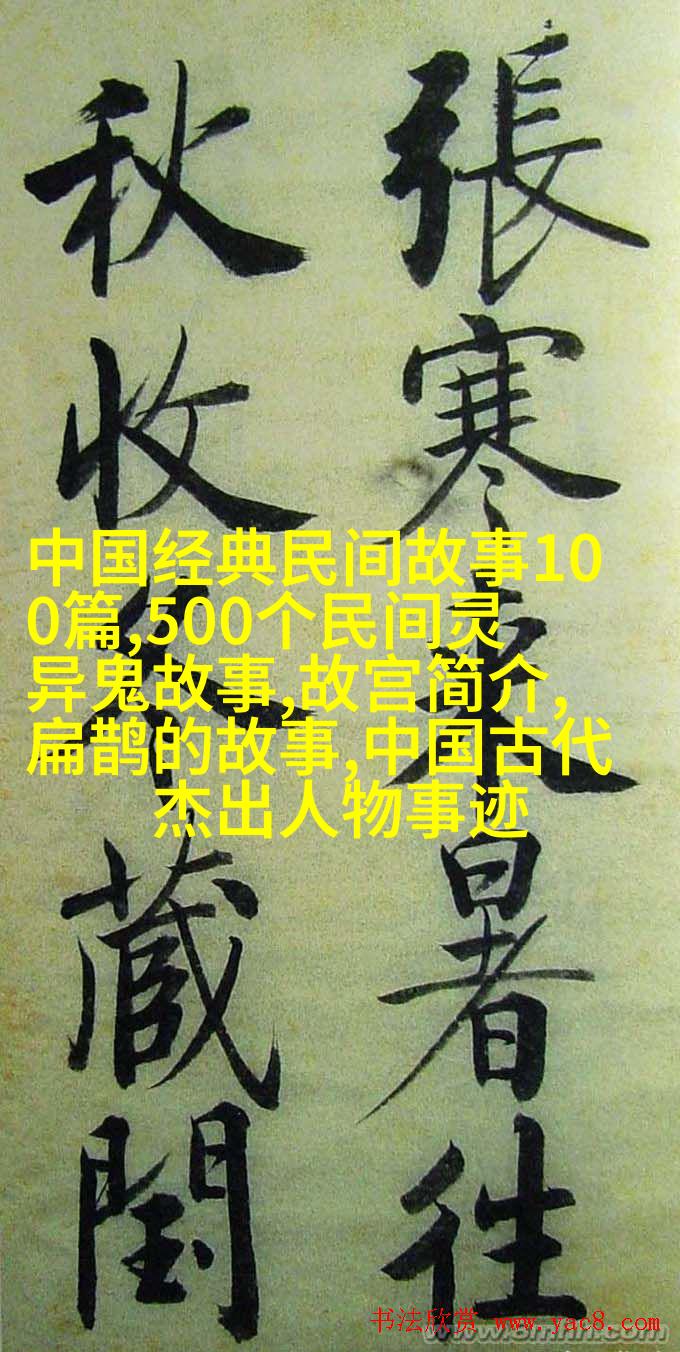 張寒来暑往
秋收冬藏閏
中国经典民间故事10
0篇,500个民间灵
异鬼故事,故宫简介,
扁鹊的故事,中国古代
杰出人物事迹
书法欣赏 www.yac8.com